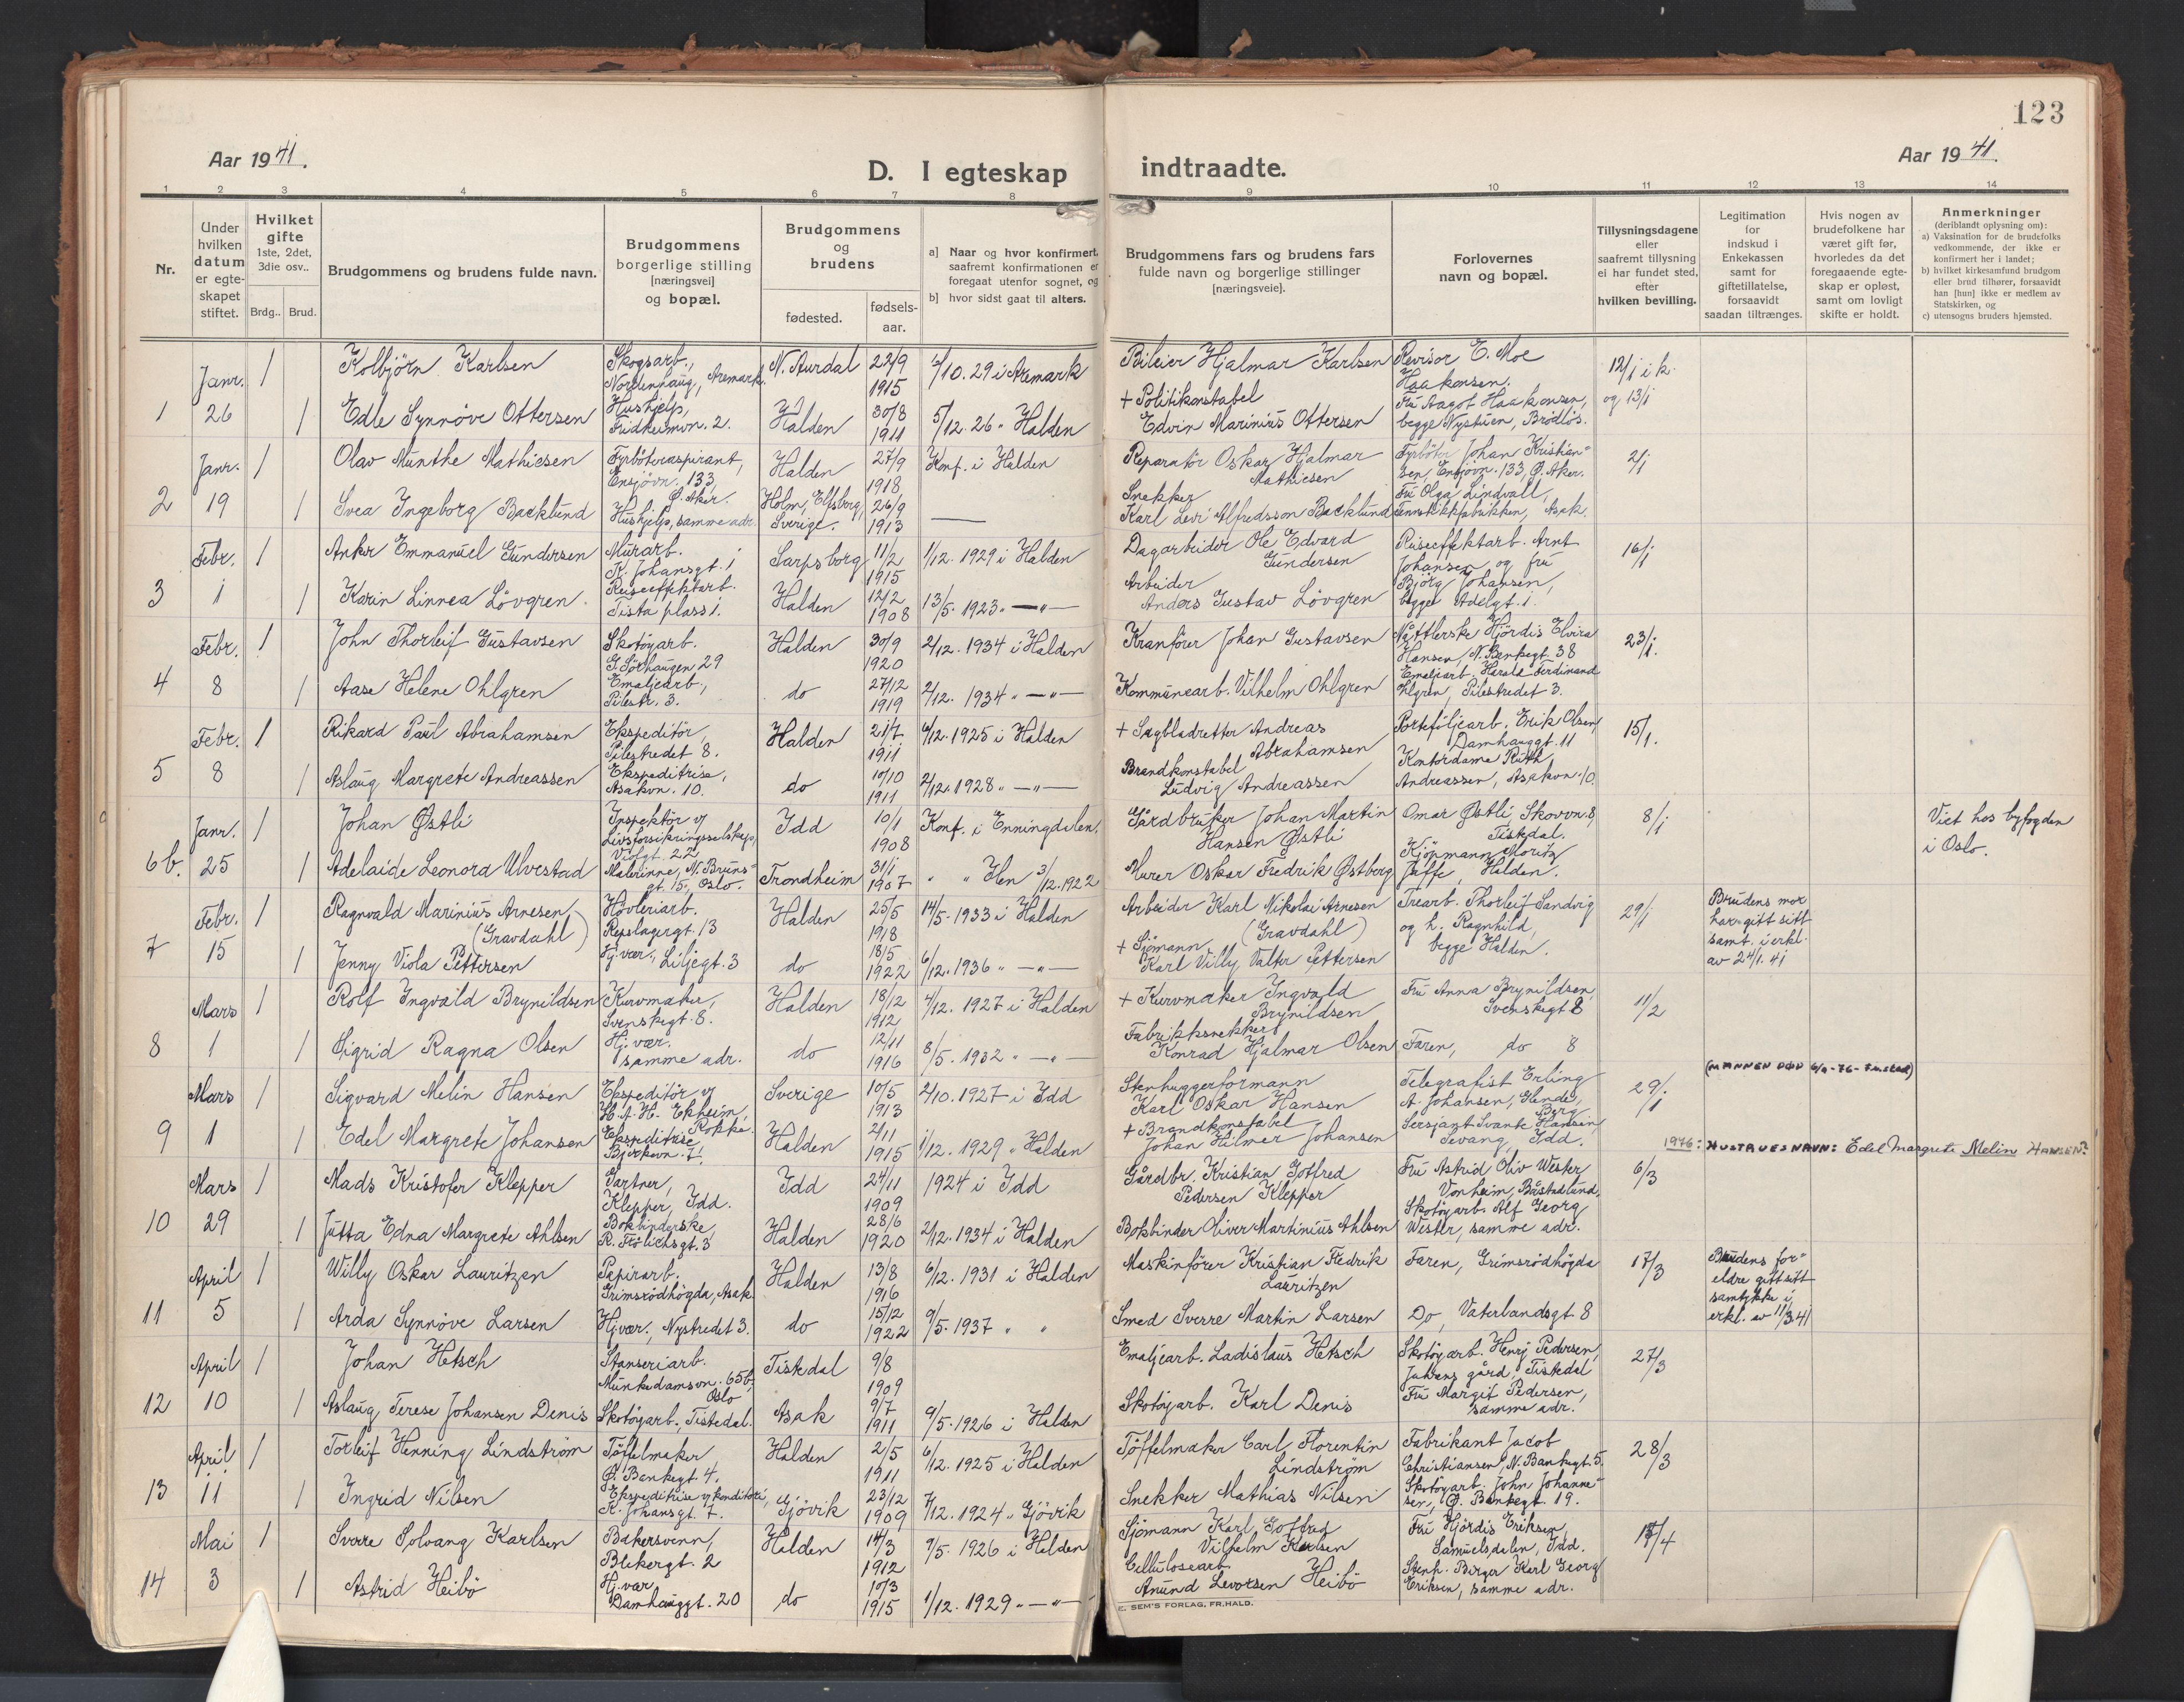 123
Aar 1941.
D. I egteskap indtraadte.
Aar 1941.
1 2 3 4 5 6 7 8 9 10 11 12 13 14
Nr.
Under hvilken datum er egteskapet stiftet.
Hvilket gifte 1ste, 2det, 3die osv..
Brdg.. Brud.
Brudgommens og brudens fulde navn.
Brudgommens borgerlige stilling [næringsvei] og bopæl.
Brudgommens og brudens
fødested.
fødsels-aar.
a) Naar og hvor konfirmert, saafremt konfirmationen er foregaat utenfor sognet, og
b) hvor sidst gaat til alters.
Brudgommens fars og brudens fars fulde navn og borgerlige stillinger [næringsveie].
Forlovernes navn og bopæl.
Tillysningsdagene eller saafremt tillysning ei har fundet sted, efter hvilken bevilling.
Legitimation for indskud i Enkekassen samt for giftetillatelse, forsaavidt saadan tiltrænges.
Hvis nogen av brudefolkene har været gift før, hvorledes da det foregaaende egteskap er opløst, samt om lovligt skifte er holdt.
Anmerkninger (deriblandt oplysning om):
a) Vaksination for de brudefolks vedkommende, der ikke er konfirmert her i landet;
b) hvilket kirkesamfund brudgom eller brud tilhører, forsaavidt han [hun] ikke er medlem av Statskirken, og
c) utensogns bruders hjemsted.
Janr. 1 Kolbjörn Karlsen Skogsarb., Nordenhaug, Aremark. N. Aurdal 22/9 1915 /10. 29 i Aremark Bileier Hjalmar Karlsen Revisor E. Moe Haakonsen. 12/1 i k. og 13/1
1 26 1 Edle Synnöve Ottersen Hushjelp, Fridheimvn. 2. Halden 30/8 1911 5/12. 26 " Halden + Politikonstabel Edvin Marinius Ottersen Fru Aagot Haakonsen, begge Nystuen, Brödlös.
Janr. 1 Olav Munthe Mathiesen Fyrböteraspirant, Ensjövn. 133, Ö. Aker. Halden 27/9 1918 Konf. i Halden Reparatör Oskar Hjalmar Mathiesen Fyrböter Johan Kristiansen, Ensjövn. 133, Ö. Aker. 2/1
2 19 1 Svea Ingeborg Backlund Hushjelp, samme adr. Holm, Elfsborg, Sverige. 26/9 1913 — Snekker Karl Levi Alfredsson Backlund Fru Olga Lindvall, Asak.
Febr. 1 Anker Emmanuel Gundersen Murarb. K. Johansgt. 1 Sarpsborg 11/2 1915 1/12. 1929 i Halden Dagarbeider Ole Edvard Gundersen Reiseeffektarb. Arnt Johansen og fru 16/1
3 1 1 Karin Linnea Lövgren. Reiseeffektarb. Tista plass 1. Halden 12/2 1908 13/5. 1923 " — " — Arbeider Anders Gustav Lövgren Björg Johansen, begge Adelgt. 1.
Febr. 1 John Thorleif Gustavsen Skotöyarb. G. Sörhaugen 29 Halden 30/9 1920 2/12. 1934 i Halden Kranförer Johan Gustavsen Nåttlerske Hjördis Elvira Hansen, N. Bankegt. 38 23/1.
4 8 1 Aase Helene Ohlgren Emaljearb., Pilestr. 3. do 27/12 1919 2/12. 1934 " — " — Kommunearb. Vilhelm Ohlgren Emaljearb. Harald Ferdinand Ohlgren, Pilestredet 3.
Febr. 1 Rikard Paul Abrahamsen Ekspeditör, Pilestredet 8. Halden 21/7 1911 6/12. 1925 i Halden + Sagbladretter Andreas Abrahamsen Porteföljearb. Erik Olsen, Damhauggt. 11 15/1.
5 8 1 Aslaug Margrete Andreassen Ekspeditrise, Asakvn. 10. do 10/10 1911 2/12. 1928 " — " — Brandkonstabel Ludvig Andreassen Kontordame Ruth Andreassen, Asakvn. 10.
Janr. 1 Johan Østli Inspektör v/ Livsforsikringsselskap, Violgt. 22 Idd 10/1 1908 Konf. i Enningdalen. Gårdbruker Johan Martin Hansen Østli Omar Østli Skovvn. 8, Tistedal. 8/1 Viet hos byfogden i Oslo.
6b. 25 1 Adelaide Leonora Ulvestad Malerinne, N. Bruns gt. 15, Oslo. Trondheim 31/1 1907 " " Hen 3/12. 1922 Murer Oskar Fredrik Østberg Kjöpmann Moritz Jaffe, Halden.
Febr. 1 Ragnvald Marinius Arnesen (Gravdahl) Hövleriarb. Repslagergt. 13 Halden 25/5 1918 14/5. 1933 i Halden Arbeider Karl Nikolai Arnesen (Gravdahl) Trearb. Thorleif Sandvig og h. Ragnhild, begge Halden. 29/1 Brudens mor har gitt sitt samt. i erkl. av 24/1. 41
7 15 1 Jenny Viola Pettersen Hj. vær., Liljegt. 3 do 18/5 1922 6/12. 1936 " — " — + Sjömann Karl Villy Valter Pettersen
Mars 1 Rolf Ingvald Brynildsen Kurvmaker, Svenskegt. 8. Halden 18/12 1912 4/12. 1927 i Halden + Kurvmaker Ingvald Brynildsen Fru Anna Brynildsen, Svenskegt 8 11/2
8 1 1 Sigrid Ragna Olsen Hj. vær. samme adr. do 12/11 1916 8/5. 1932 " — " — Fabrikksnekker Konrad Hjalmar Olsen Faren, do 8
(MANNEN DØD
Mars 1 Sigvard Melin Hansen Ekspeditör v/ H.A.H. Ekheim, Rokke. Sverige 10/5 1913 2/10. 1927 i Idd Stenhuggerformann Karl Oskar Hansen Telegrafist Erling A. Johansen, Glende, Berg 29/1
9 1 1 Edel Margrete Johansen Ekspeditrise, Bjerkevn. 7. Halden 2/11 1915 1/12. 1929 " Halden + Brandkonstabel Johan Hilmer Johansen Sersjant Svante Hansen, Sevang, Idd.
1976: HUSTRUES NAVN: Edel Margrete Melin HANSEN.
Mars 1 Mads Kristofer Klepper Gartner, Klepper, Idd. Idd 24/11 1909 1924 i Idd Gårdbr. Kristian Gotfred Pedersen Klepper Fru Astrid Oliv Wester Vonheim, Båstadlund, 6/3
10 29 1 Jutta Edna Margrete Ahlsen Bokbinderske, R. Frölichsgt. 3 Halden 28/6 1920 2/12. 1934 i Halden Bokbinder Oliver Martinius Ahlsen Skotöyarb. Alf Georg Wester, samme adr.
April 1 Willy Oskar Lauritzen Papirarb. Grimsrödhögda, Asak. Halden 13/8 1916 6/12. 1931 i Halden Maskinförer Kristian Fredrik Lauritzen Faren, Grimsrödhögda 17/3 Brudens foreldre gitt sitt samtykke i erkl. av 11/3 41
11 5 1 Arda Synnöve Larsen Hj. vær., Nystredet 3. do 15/12 1922 9/5. 1937 " " Smed Sverre Martin Larsen Do, Vaterlandsgt 8
April 1 Johan Hetsch Stanseriarb. Munkedamsvn. 65b, Oslo Tistedal 9/8 1909 Emaljearb. Ladislaus Hetsch Skotöyarb. Henry Pedersen, gård, Tistedal 27/3
12 10 1 Aslaug Terese Johansen Denis Skotöyarb., Tistedal. Asak 9/7 1911 9/5. 1926 i Halden Skotöyarb. Karl Denis Fru Margit Pedersen, samme adr.
April 1 Torleif Henning Lindström Töffelmaker Ö. Bankegt 4. Halden 2/5 1911 6/12. 1925 i Halden Töffelmaker Carl Florentin Lindström Fabrikant Jacob Christiansen, N. Bankegt. 5. 28/3
13 11 1 Ingrid Nilsen Ekspeditrise v/ konditori, K. Johansgt. 7. Gjövik 23/12 1909 7/12. 1924 " Gjövik Snekker Mathias Nilsen Skotöyarb. John Johannesen, Ö. Bankegt. 19.
Mai 1 Sverre Solvang Karlsen Bakersvenn, Blekergt. 2 Halden 14/3 1912 9/5. 1926 i Halden Sjömann Karl Gotfred Vilhelm Karlsen Fru Hjördis Eriksen, Samuelsdalen, Idd. /4
14 3 1 Astrid Heibö Hj. vær. Damhauggt. 20 do 10/3 1915 1/12. 1929 " — " — Cellulosearb. Anund Levorsen Heibö Stenh. Birger Karl Georg Eriksen, samme adr.
E. SEM'S FORLAG, FR.HALD.